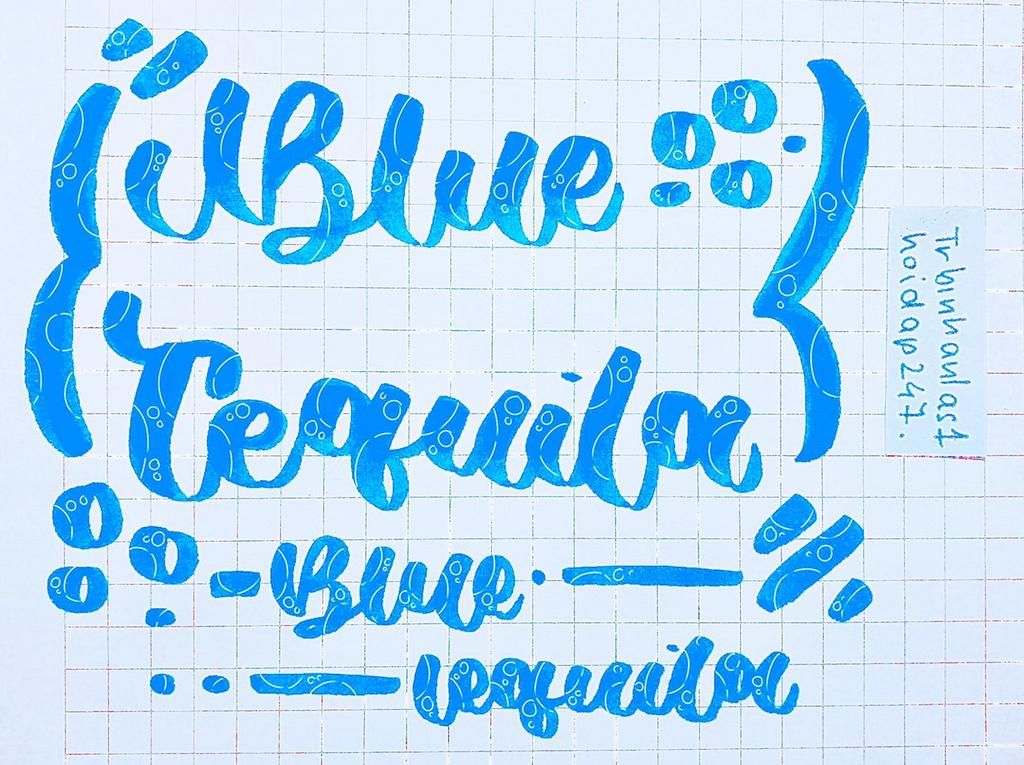 Blue
Tequila
Blue
tequila
Trhinhanlas1
hoidap247.